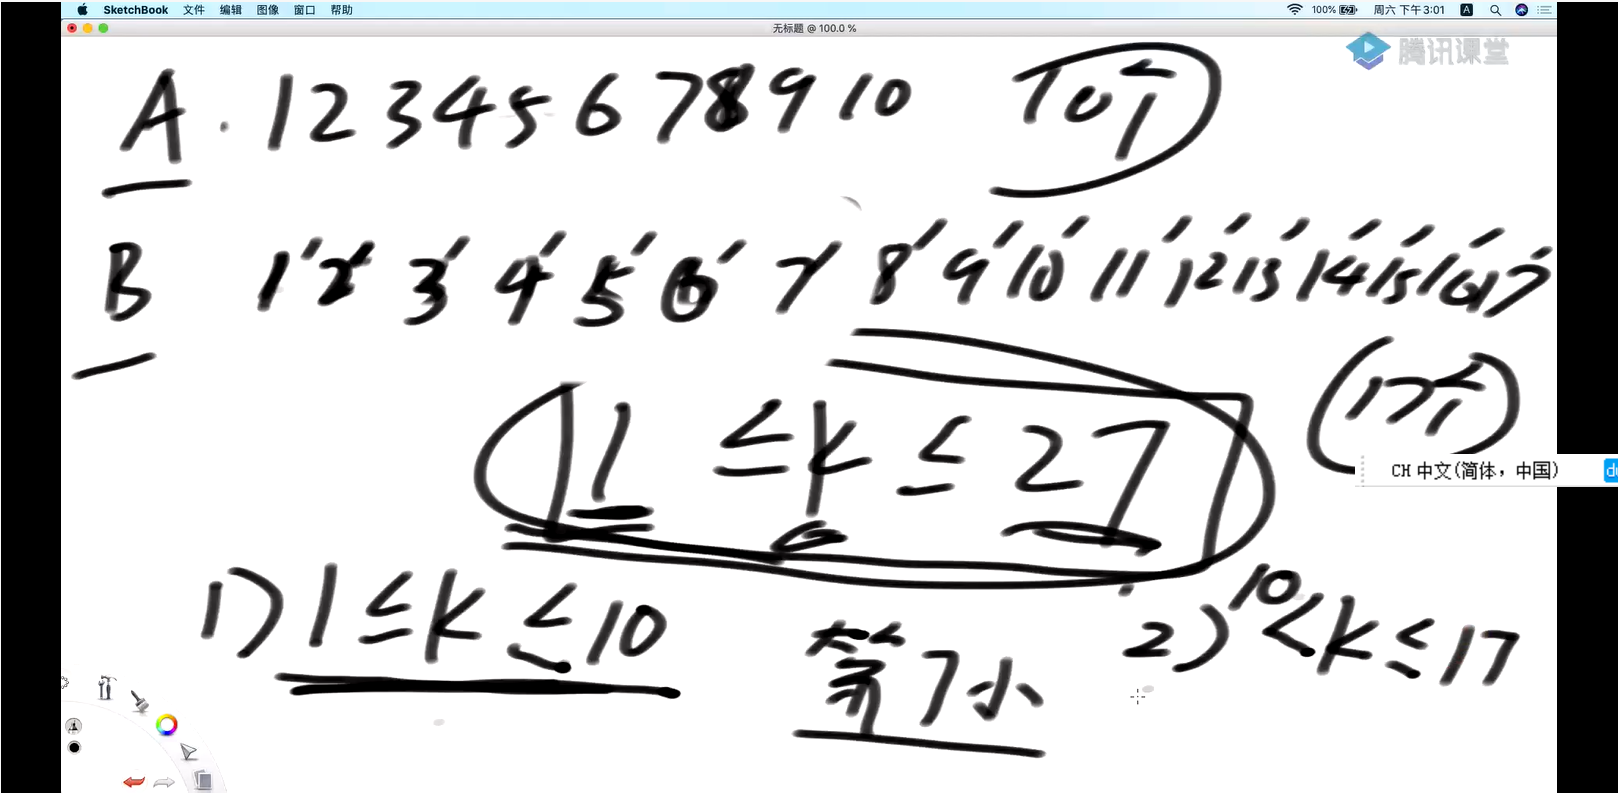 SketchBook 文件 编辑 图像 窗口 帮助 100% 周六 下午3:01 A
无标题 @ 100.0 %
腾讯课堂
A. 1 2 3 4 5 6 7 8 9 10 10个
B 1' 2' 3' 4' 5' 6' 7' 8' 9' 10' 11' 12' 13' 14' 15' 16' 17'
17个
1 ≤ K ≤ 27
CH 中文(简体，中国)
1) 1 ≤ K ≤ 10
第7小
2) 10 < K ≤ 17